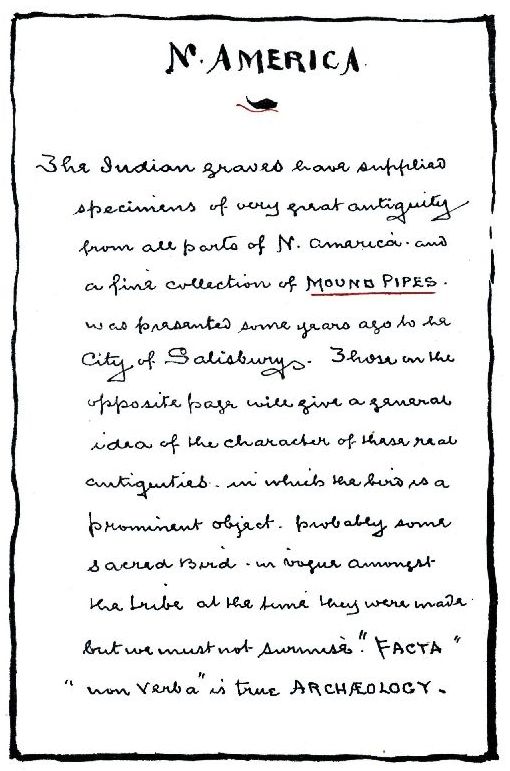 N. AMERICA
The Indian graves have supplied
specimens of very great antiquity
from all parts of N. America. and
a fine collection of MOUND PIPES.
was presented some years ago to the
City of Salisbury. Those on the
opposite page will give a general
idea of the character of these real
antiquities. in which the bird is a
prominent object. probably some
sacred Bird - in vogue amongst
the tribe at the time they were made
but we must not surmise. "FACTA"
"non verba" is true ARCHÆOLOGY.